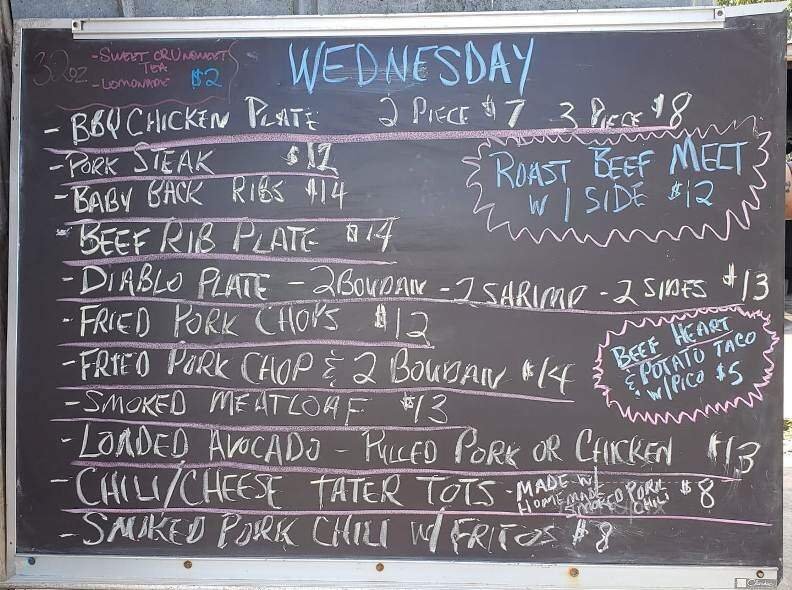 WEDNESDAY
32oz
- SWEET OR UNSWEET
TEA
- LEMONADE $2
- BBQ CHICKEN PLATE 2 PIECE $7 3 PIECE $8
- PORK STEAK $12
- BABY BACK RIBS $14
ROAST BEEF MELT
W/ SIDE $12
- BEEF RIB PLATE $14
- DIABLO PLATE - 2 BOUDAN - 2 SHRIMP - 2 SIDES $13
- FRIED PORK CHOPS $12
BEEF HEART
& POTATO TACO
W/ PICO $5
- FRIED PORK CHOP & 2 BOUDAN $14
- SMOKED MEATLOAF $13
- LOADED AVOCADO - PULLED PORK OR CHICKEN $13
- CHILI/CHEESE TATER TOTS - MADE W/ $8
HOMEMADE
SMOKED PORK
CHILI
- SMOKED PORK CHILI W/ FRITOS $8